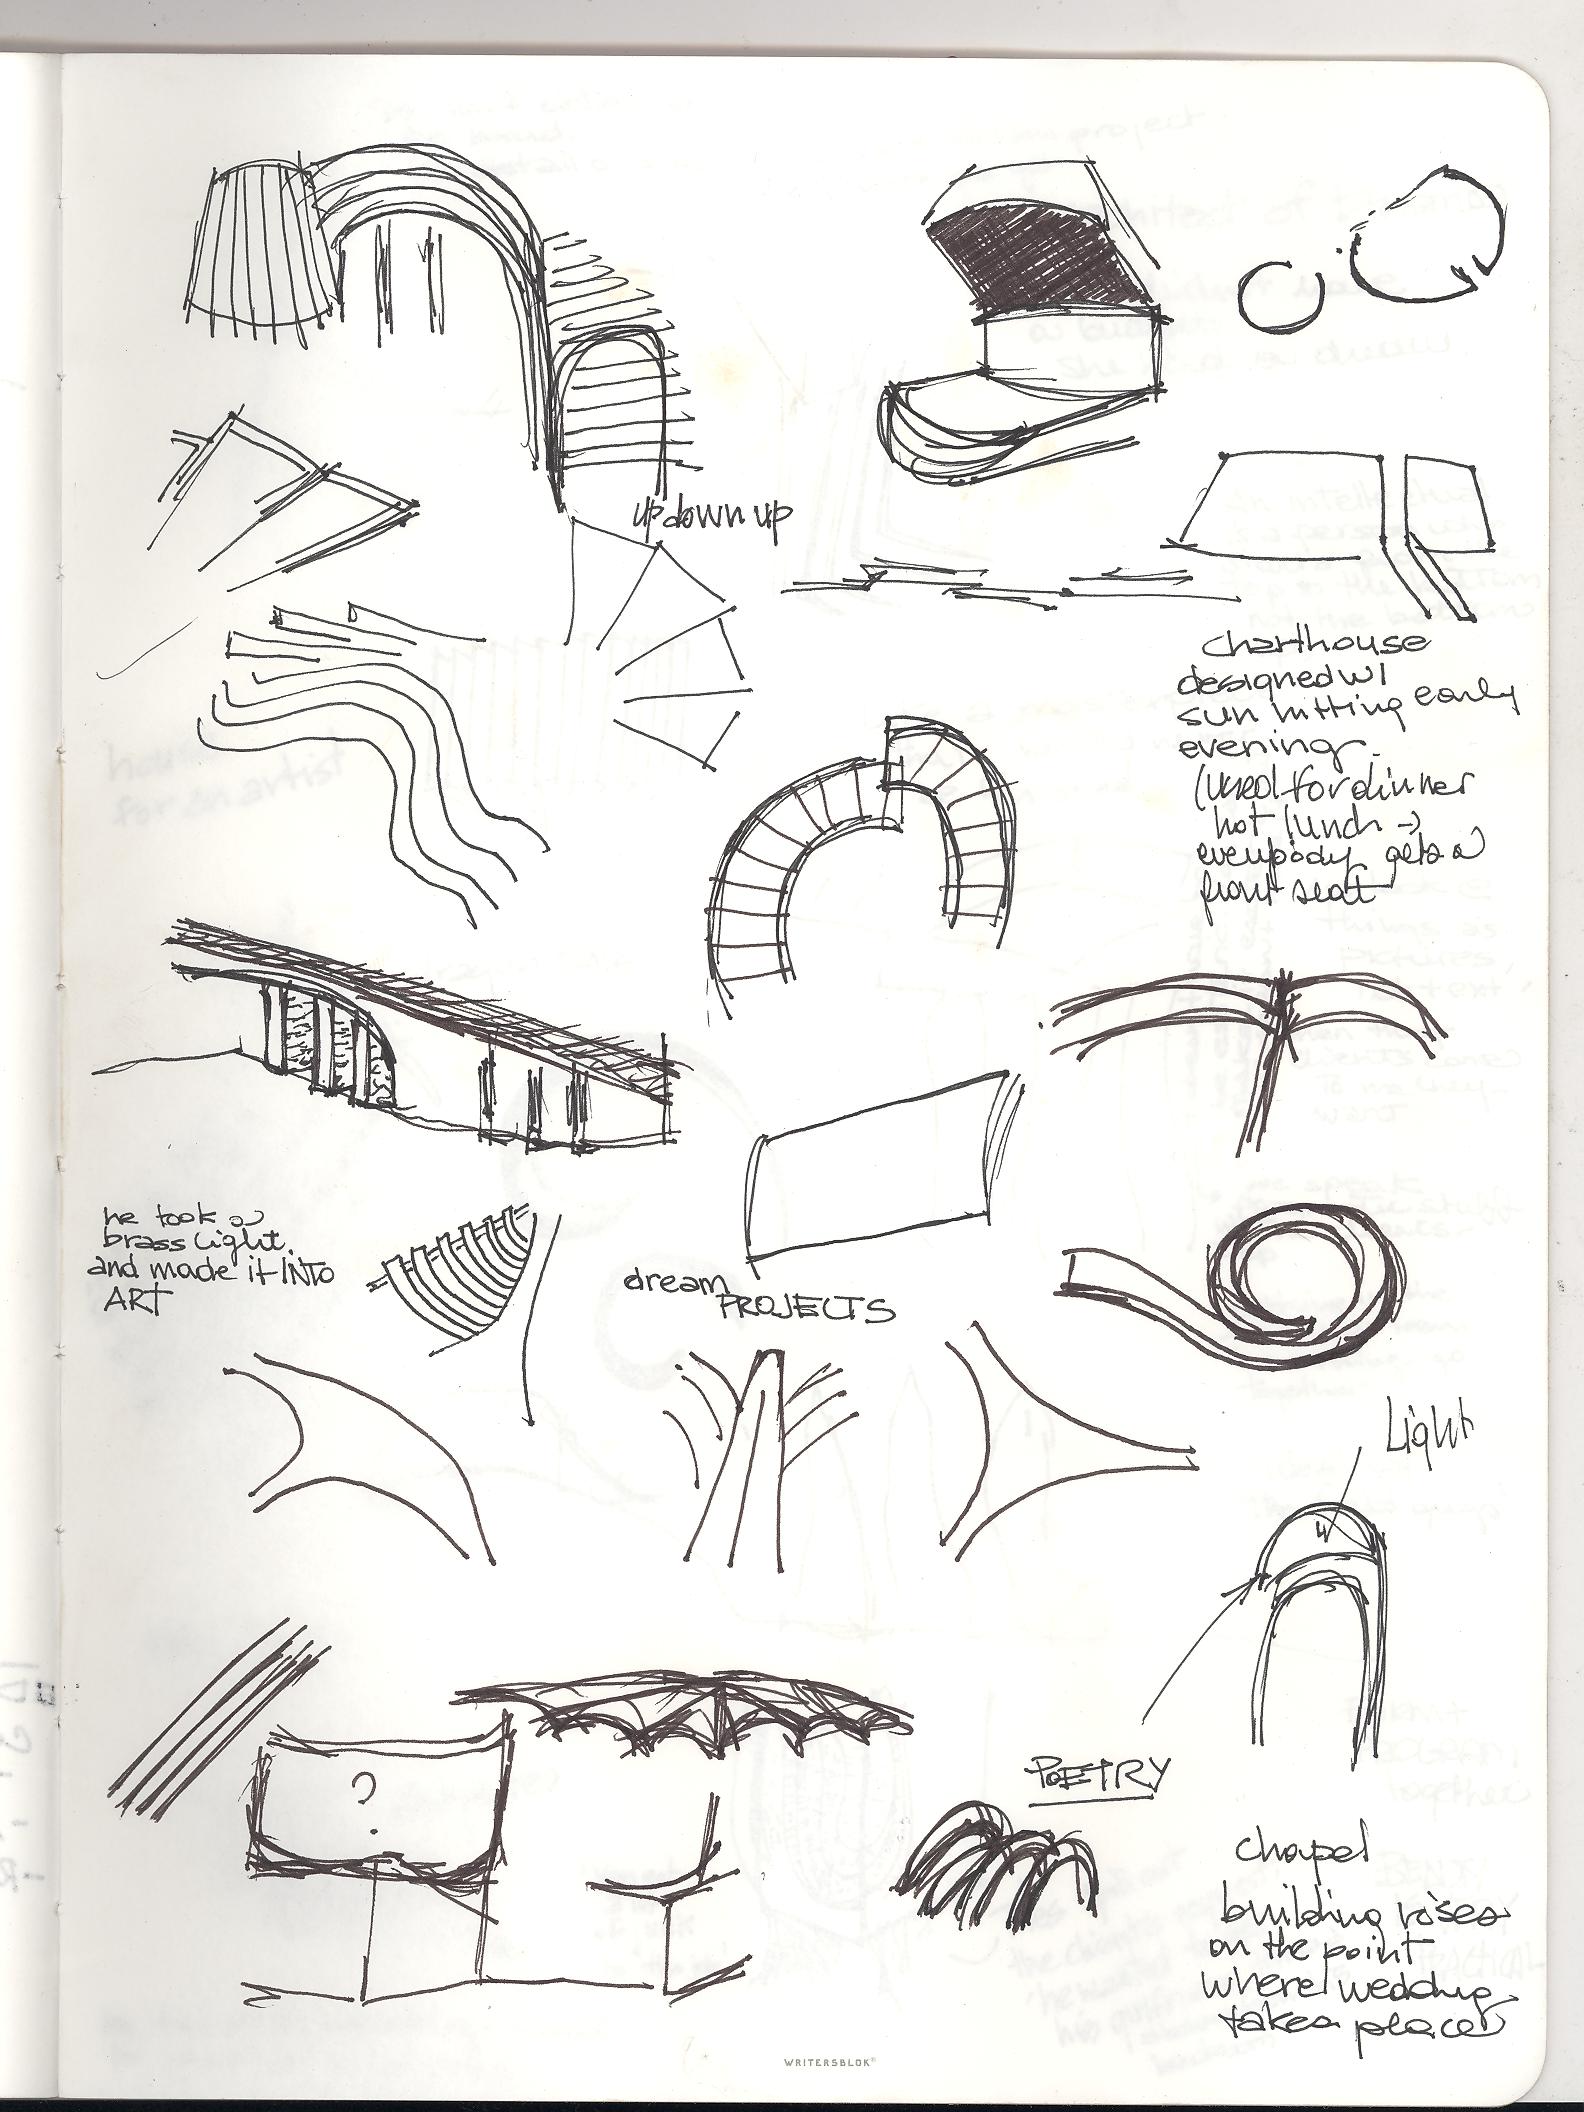 up down up
charthouse
designed w/
sun hitting early
evening.
(used for dinner
not lunch →
everybody gets a
front seat
he took a
brass light.
and made it INTO
ART
dream
PROJECTS
Light
?
POETRY
chapel
building rises
on the point
where wedding
takes place
house
for an artist
WRITERSBLOK®